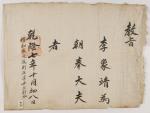 教旨
李象靖爲
朝奉大夫
者
乾隆七年十月初八日